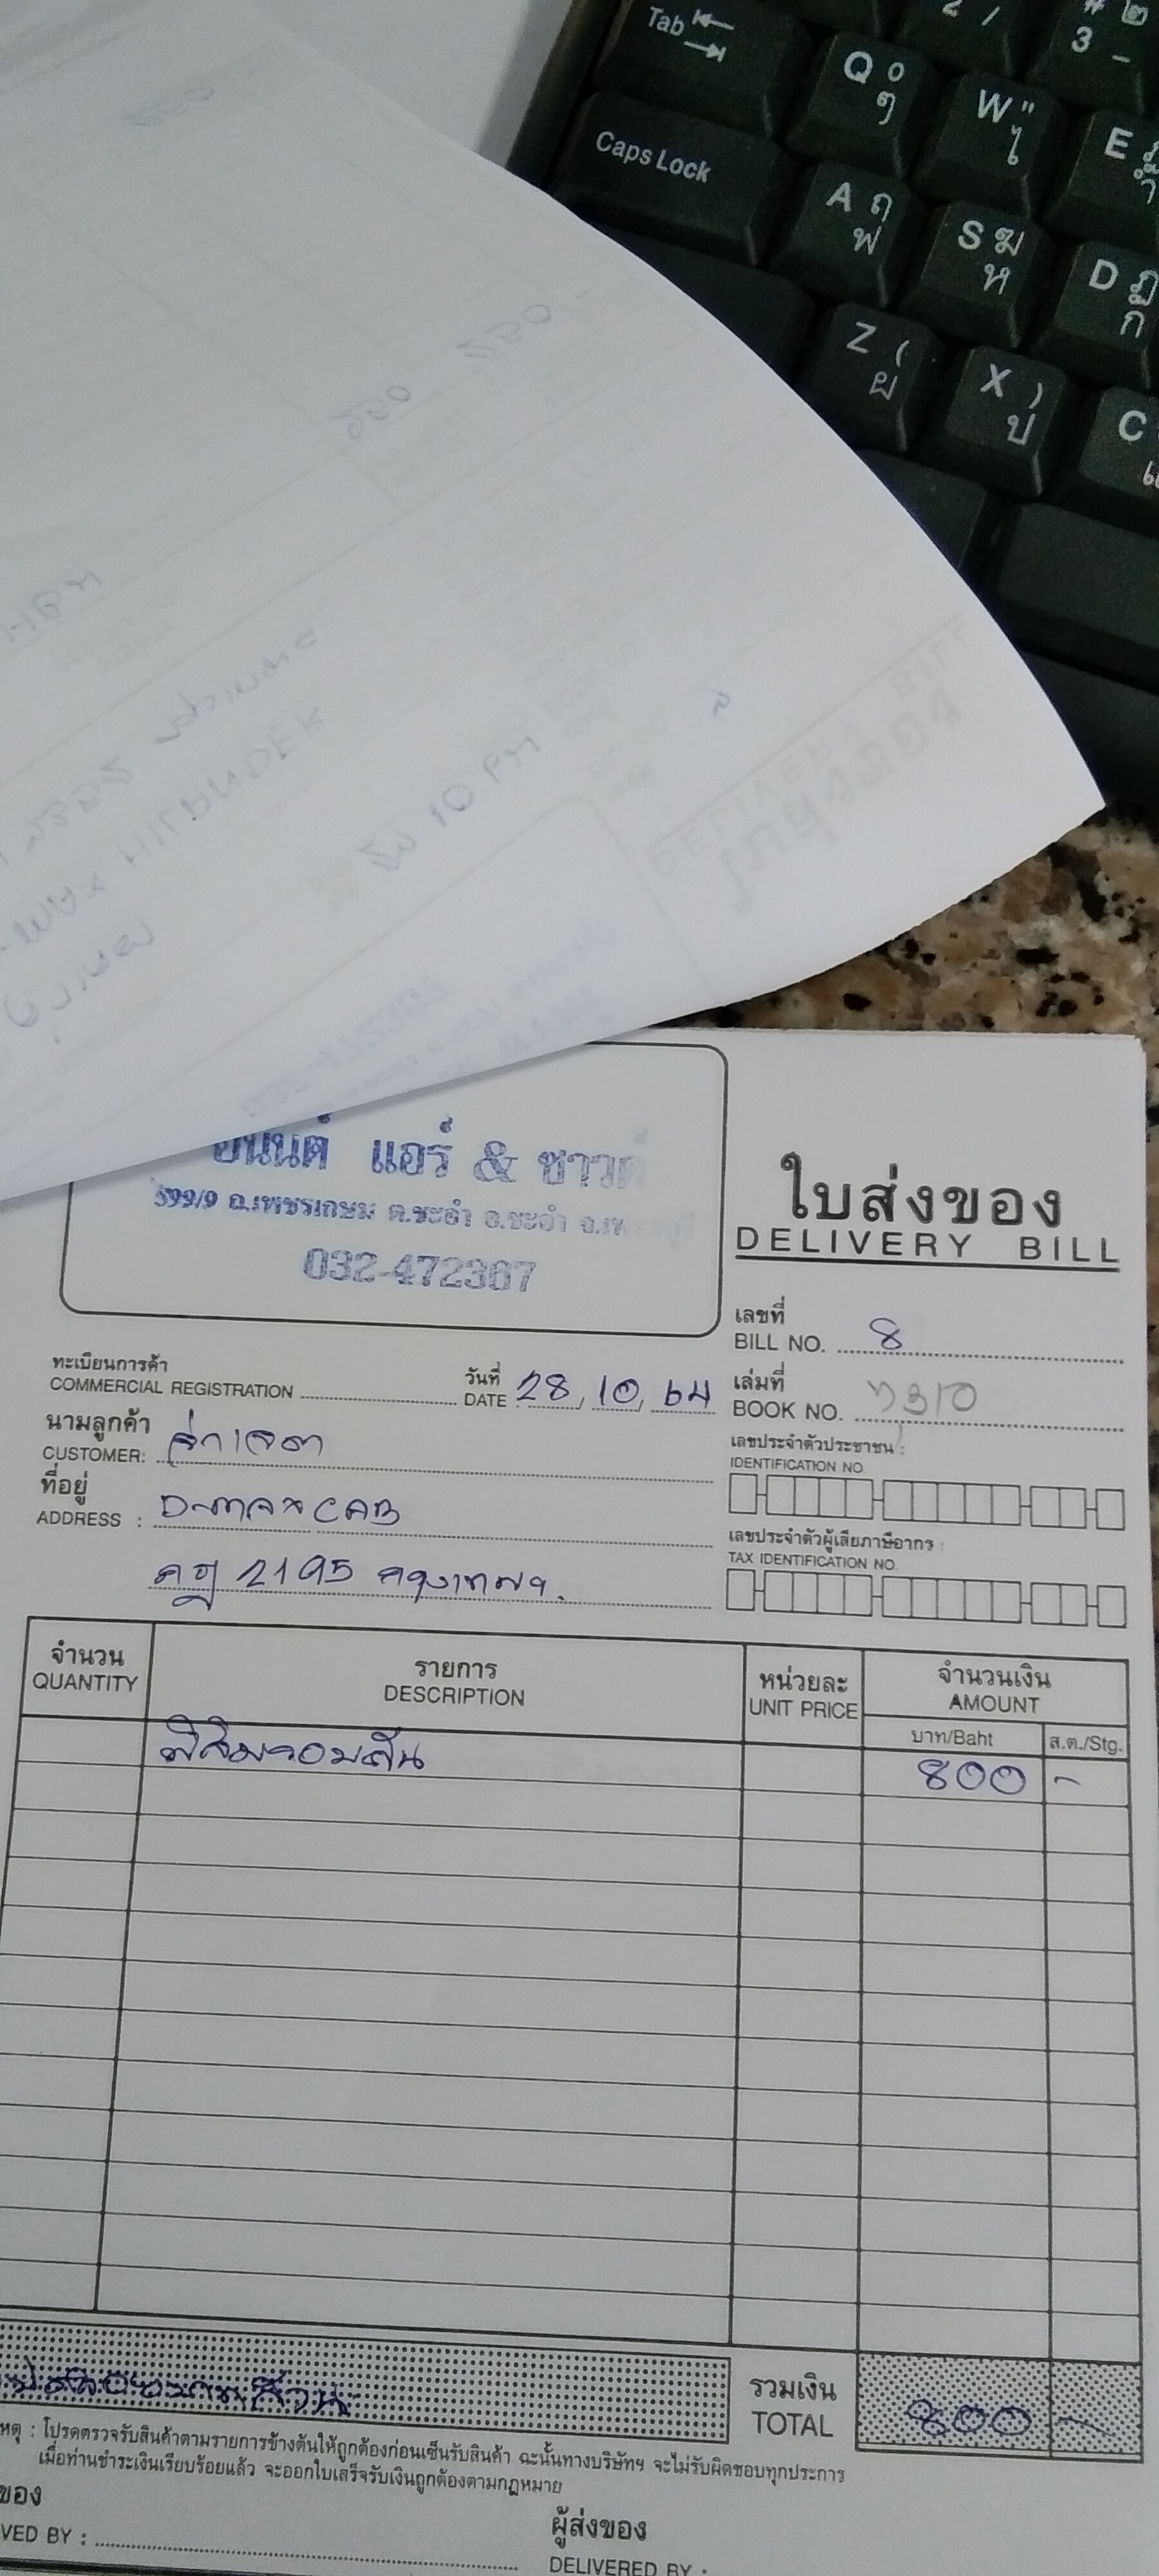 Tab
2 /
# ๒
3 _
Q ๐
ๆ
W "
ไ
E ฎ
ำ
Caps Lock
A ฤ
ฟ
S ฆ
ห
D ฏ
ก
Z (
ผ
X )
ป
C
แ
อนันต์ แอร์ & ซาวด์
599/9 ถ.เพชรเกษม ต.ชะอำ อ.ชะอำ
032-472367
ใบส่งของ
DELIVERY BILL
เลขที่
BILL NO. 8
ทะเบียนการค้า
COMMERCIAL REGISTRATION
วันที่
DATE 28, 10, 64
เล่มที่
BOOK NO.
นามลูกค้า
CUSTOMER:
เลขประจำตัวประชาชน :
IDENTIFICATION NO.
ที่อยู่
ADDRESS : D-max CAB
เลขประจำตัวผู้เสียภาษีอากร :
TAX IDENTIFICATION NO.
2195 กรุงเทพฯ
จำนวน
QUANTITY
รายการ
DESCRIPTION
หน่วยละ
UNIT PRICE
จำนวนเงิน
AMOUNT
บาท/Baht
ส.ต./Stg.
ฟิล์มรอบคัน
800 -
รวมเงิน
TOTAL
800 -
หตุ : โปรดตรวจรับสินค้าตามรายการข้างต้นให้ถูกต้องก่อนเซ็นรับสินค้า ฉะนั้นทางบริษัทฯ จะไม่รับผิดชอบทุกประการ
เมื่อท่านชำระเงินเรียบร้อยแล้ว จะออกใบเสร็จรับเงินถูกต้องตามกฎหมาย
ของ
VED BY :
ผู้ส่งของ
DELIVERED BY :